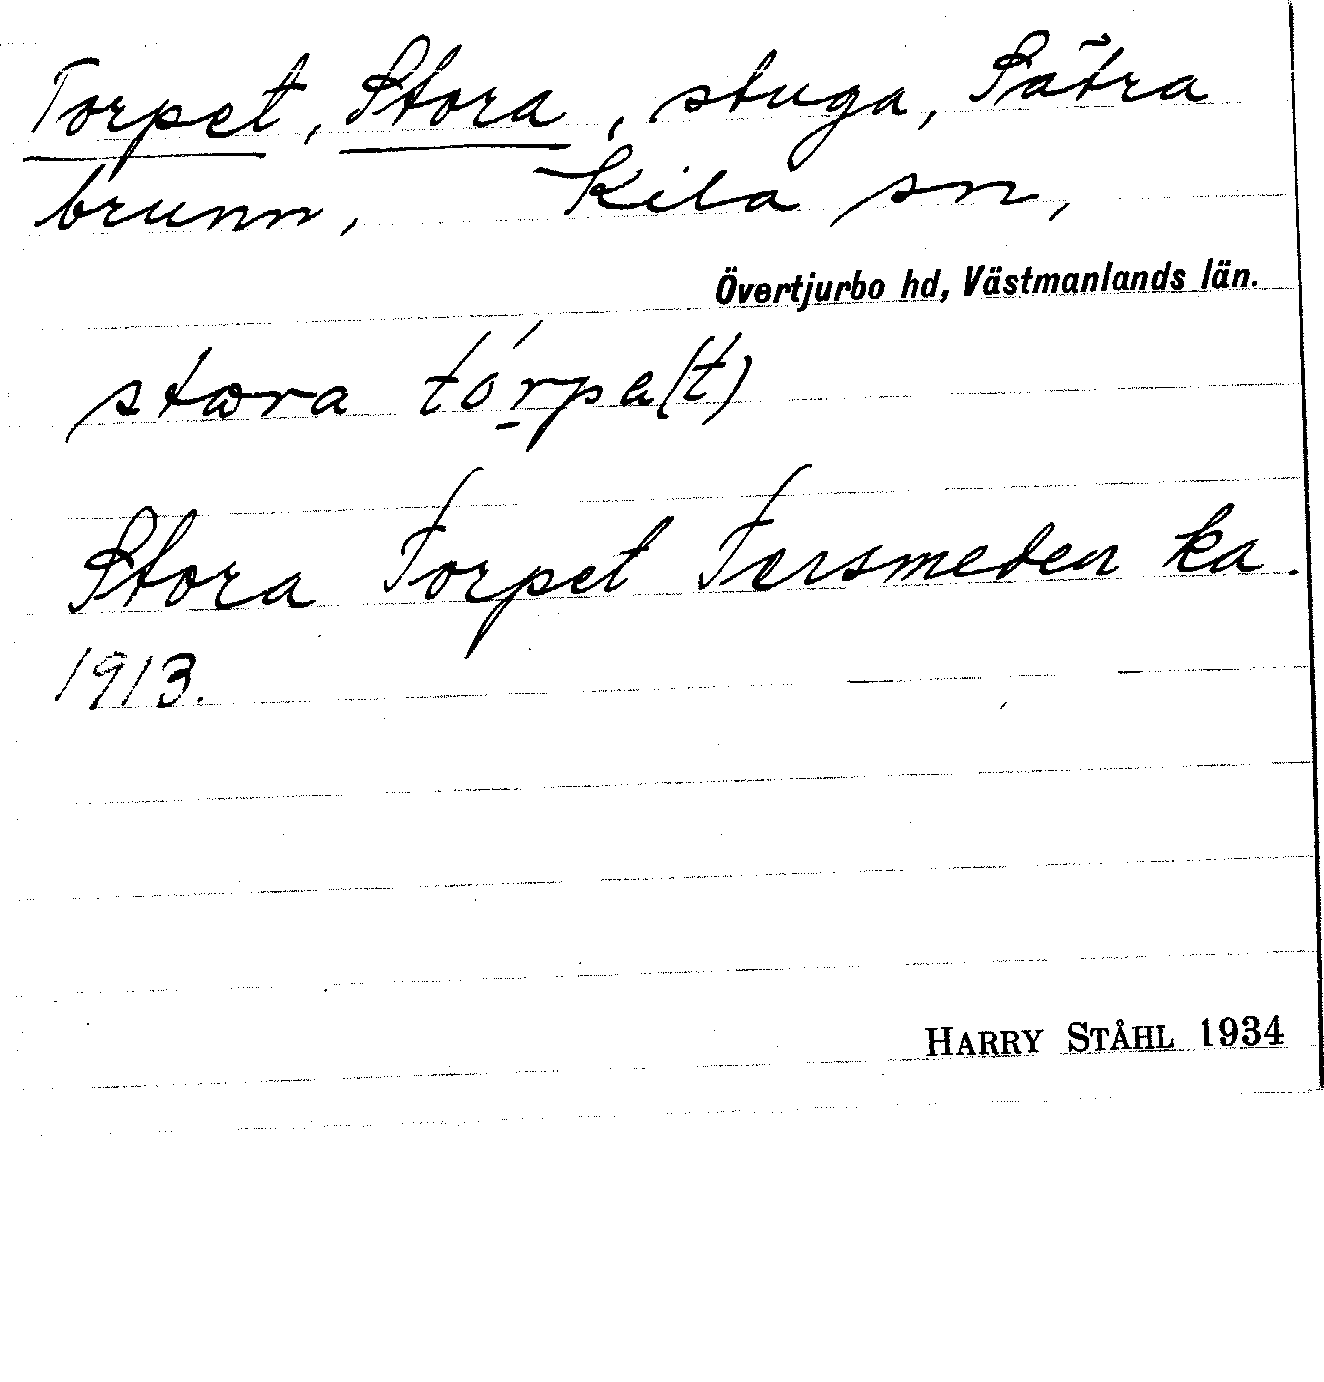 Torpet, Stora, stuga, Sätra
brunn, Kila sn,
Övertjurbo hd, Västmanlands län.
stæra tórpe(t)
Stora Torpet Tersmeden ka.
1913.
HARRY STÅHL 1934